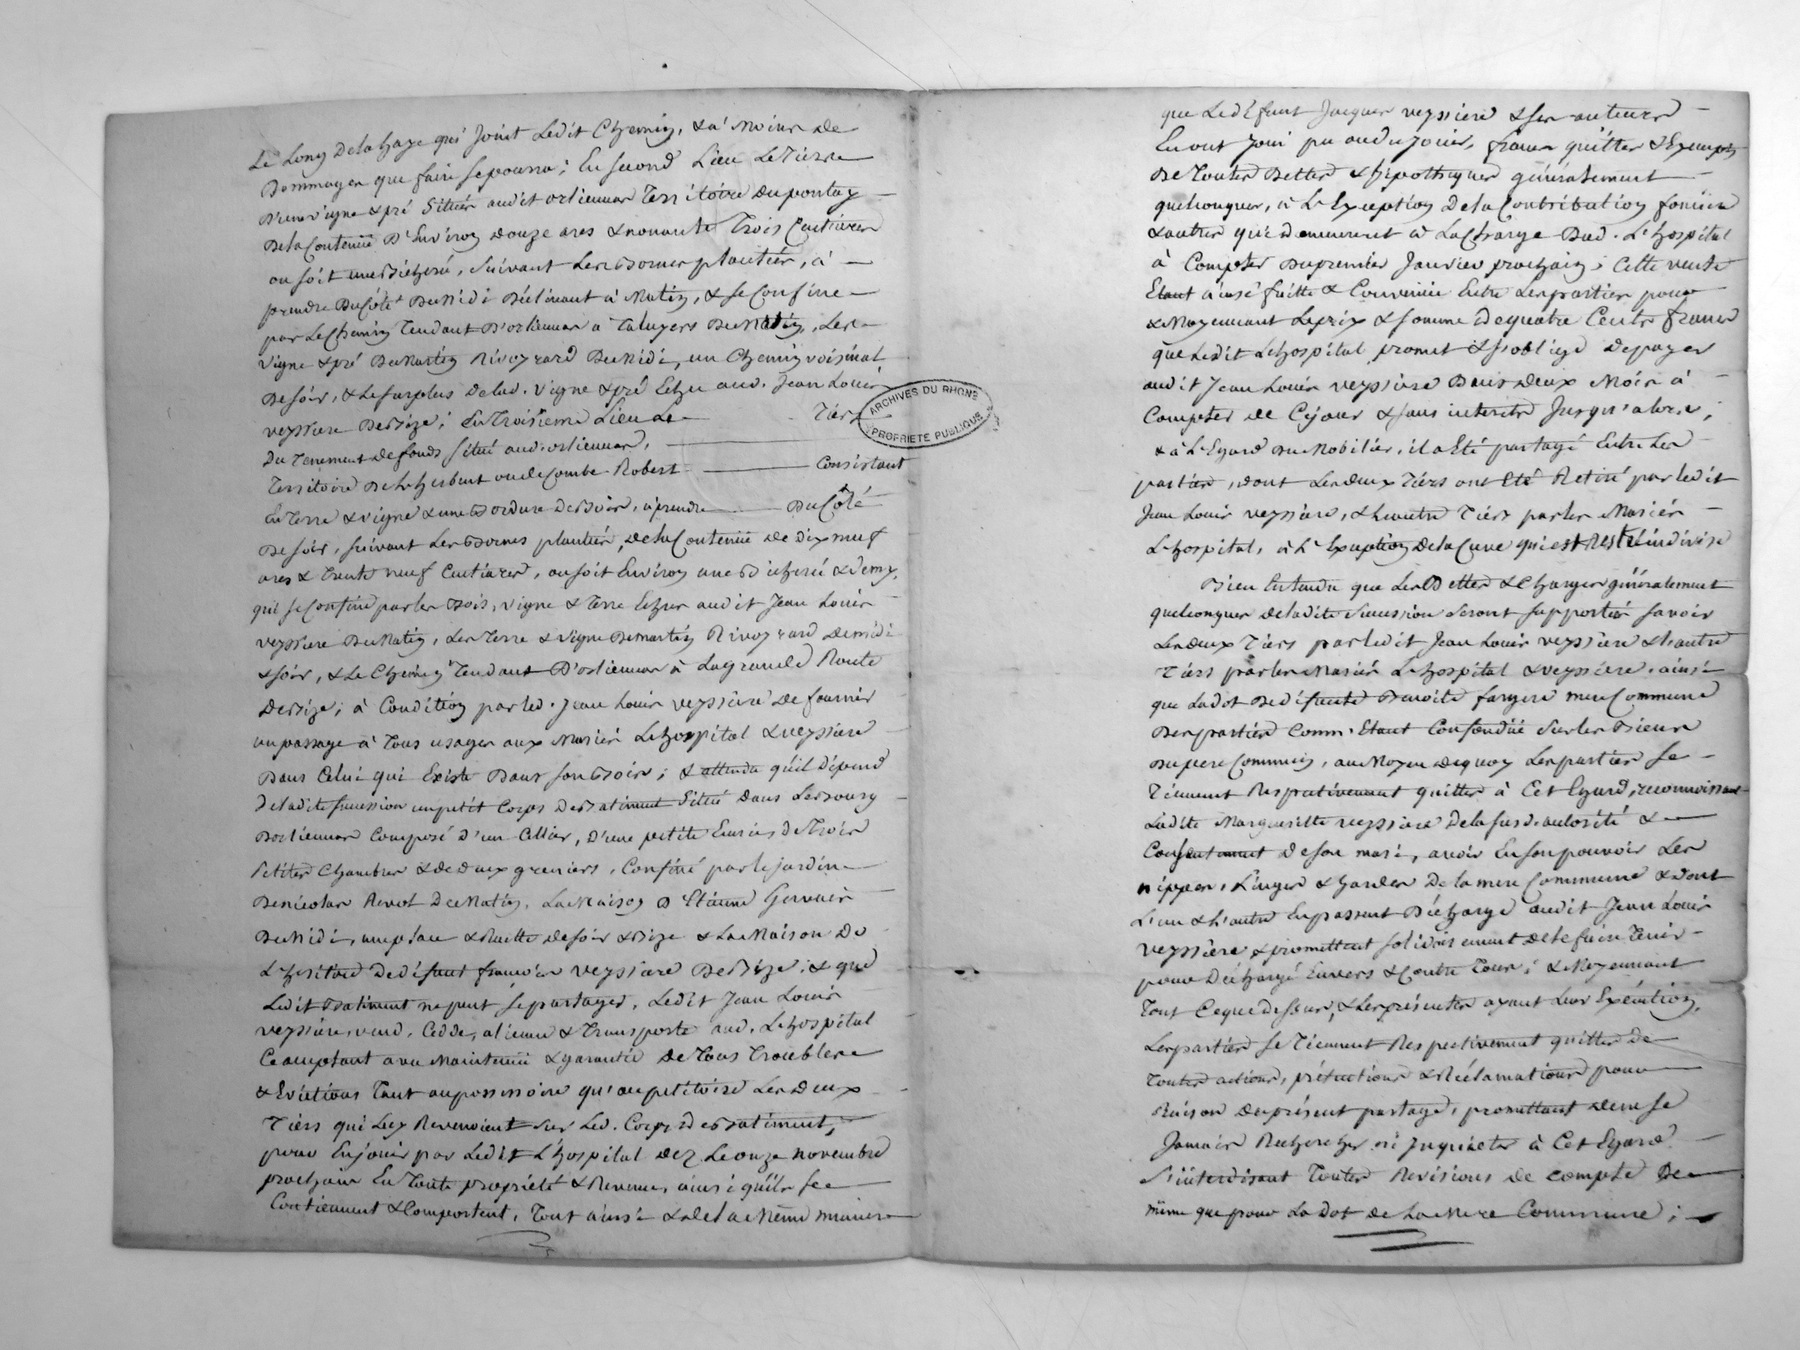 Le Long dela haye qui Joint Ledit Chemin, & a' moins de
Dommages que faire se pourra; En second Lieu Le Tierre
D'une vigne & pré situés audit orlienas Territoire du pontay
De la Contenue D'Environ douze ares & nonante Trois Centiares
ou soit une Bicherée, suivant Les Bornes plantées, à
prendre Du Côté Du Midi Déclinant à Matin, & se Confine
par Le Chemin Tendant D'orlienas a Taluyers Du Matin, Les
vigne & pré De Martin Rivoyrard Du Midi, un Chemin voisinal
De soir, & Le surplus Delad. vigne & pré Echu aud. Jean Louis
veyssiere De Bize; En Troisieme Lieu Le Tiers
Du Tenement de fonds situé aud. orlienas,
Territoire De L'herbent ou de Combe Robert Consistant
En Terre & vigne & une Bordure de Bois, à prendre Du Côté
De soir, suivant Les Bornes plantées, de la Contenue de dix neuf
ares & Trente neuf Centiares, ou soit Environ une Bicherée & demy,
qui se Confine par les Bois, vigne & Terre Echus audit Jean Louis
veyssiere Du Matin, Les Terre & vigne De martin Rivoyrard de midi
& soir, & Le Chemin Tendant D'orlienas à La grande Route
De Bize; à Condition par led. Jean Louis veyssiere de fournir
un passage à Tous usages aux Mariés Lhospital & veyssiere
Dans Celui qui Existe Dans son Bois; & attendu qu'il Dépend
De ladite succession un petit Corps de Batiment situé dans Le Bourg
D'orlienas Composé D'un Cellier, D'une petite Ecurie, de Trois
petites Chambres & de deux greniers, Confiné par le jardin
De nicolas Revot De Matin, La Maison D'Etienne Gervais
De Midi, une place & Ruette de soir & Bize & La Maison De
L'heritier de défunt francois veyssiere De Bize; & que
Ledit Batiment ne peut se partager, Ledit Jean Louis
veyssiere, vend, Cedde, aliene & Transporte aud. Lhospital
Ce acceptant avec Maintenue & garantie De Tous Troubles
& Evictions Tant au possessoire qu'au petitoire Les Deux
Tiers qui Luy Revenoient sur Led. Corps de Batiment,
pour En jouir par Ledit L'hospital dez Le onze novembre
prochain En Toute propriété & Revenus, ainsi qu'ils se
Contiennent & Comportent, Tout ainsi & de la Même maniere
ARCHIVES DU RHONE
PROPRIETE PUBLIQUE
que Le défunt Jacques veyssiere & ses auteurs
En ont Joui pu ou dû jouir, francs quittes & Exempts
De Toutes Dettes & hipotheques généralement
quelconques, à L'Exception De la Contribution fonciere
& autres qui demeurent à La Charge Dud. L'hospital
à Compter Du premier Janvier prochain; Cette vente
Etant ainsi faitte & Convenue Entre Les parties pour
& Moyennant Le prix & somme de quatre Cents francs
que Ledit Lhospital promet & s'oblige de payer
audit Jean Louis veyssiere Dans deux Mois à
Compter de Ce jour & sans interets Jusqu'alors;
& à L'Egard Du Mobilier, il a Eté partagé Entre Les
parties, dont Les deux Tiers ont Eté Retiré par ledit
Jean Louis veyssiere, & L'autre Tiers par les Mariés
L'hospital, à L'Exception De la Cuve qui est Restée indivise
Bien Entendu que Les Dettes & Charges généralement
quelconques de ladite succession seront supportées savoir
Les deux Tiers par ledit Jean Louis veyssiere & L'autre
Tiers par les Mariés Lhospital & veyssiere. ainsi
que La dot De défunte Benoite fargere mere Commune
Des parties Comm. Etant Confondue sur les Biens
Du pere Commun, au Moyen de quoy Les parties se
Tiennent Respectivement quittes à Cet Egard, reconnoissant
Ladite Marguerite veyssiere de la susd. autorité &
Consentement de son mari, avoir En son pouvoir Les
nippes, Linges & hardes De la mere Commune & dont
L'un & L'autre En passent Décharge audit Jean Louis
veyssiere & promettent solidairement de le faire Tenir
pour Déchargé Envers & Contre Tous; & Moyennant
Tout Ce que dessus, & Les présentes ayant Leur Exécution,
Les parties se Tiennent Respectivement quittes de
Toutes actions, prétentions & Réclamations pour
Raison du présent partage, promettant de ne se
Jamais Rechercher ni Inquiéter à Cet Egard
S'interdisant Toutes Revisions de compte De
même que pour La dot de La Mere Commune;